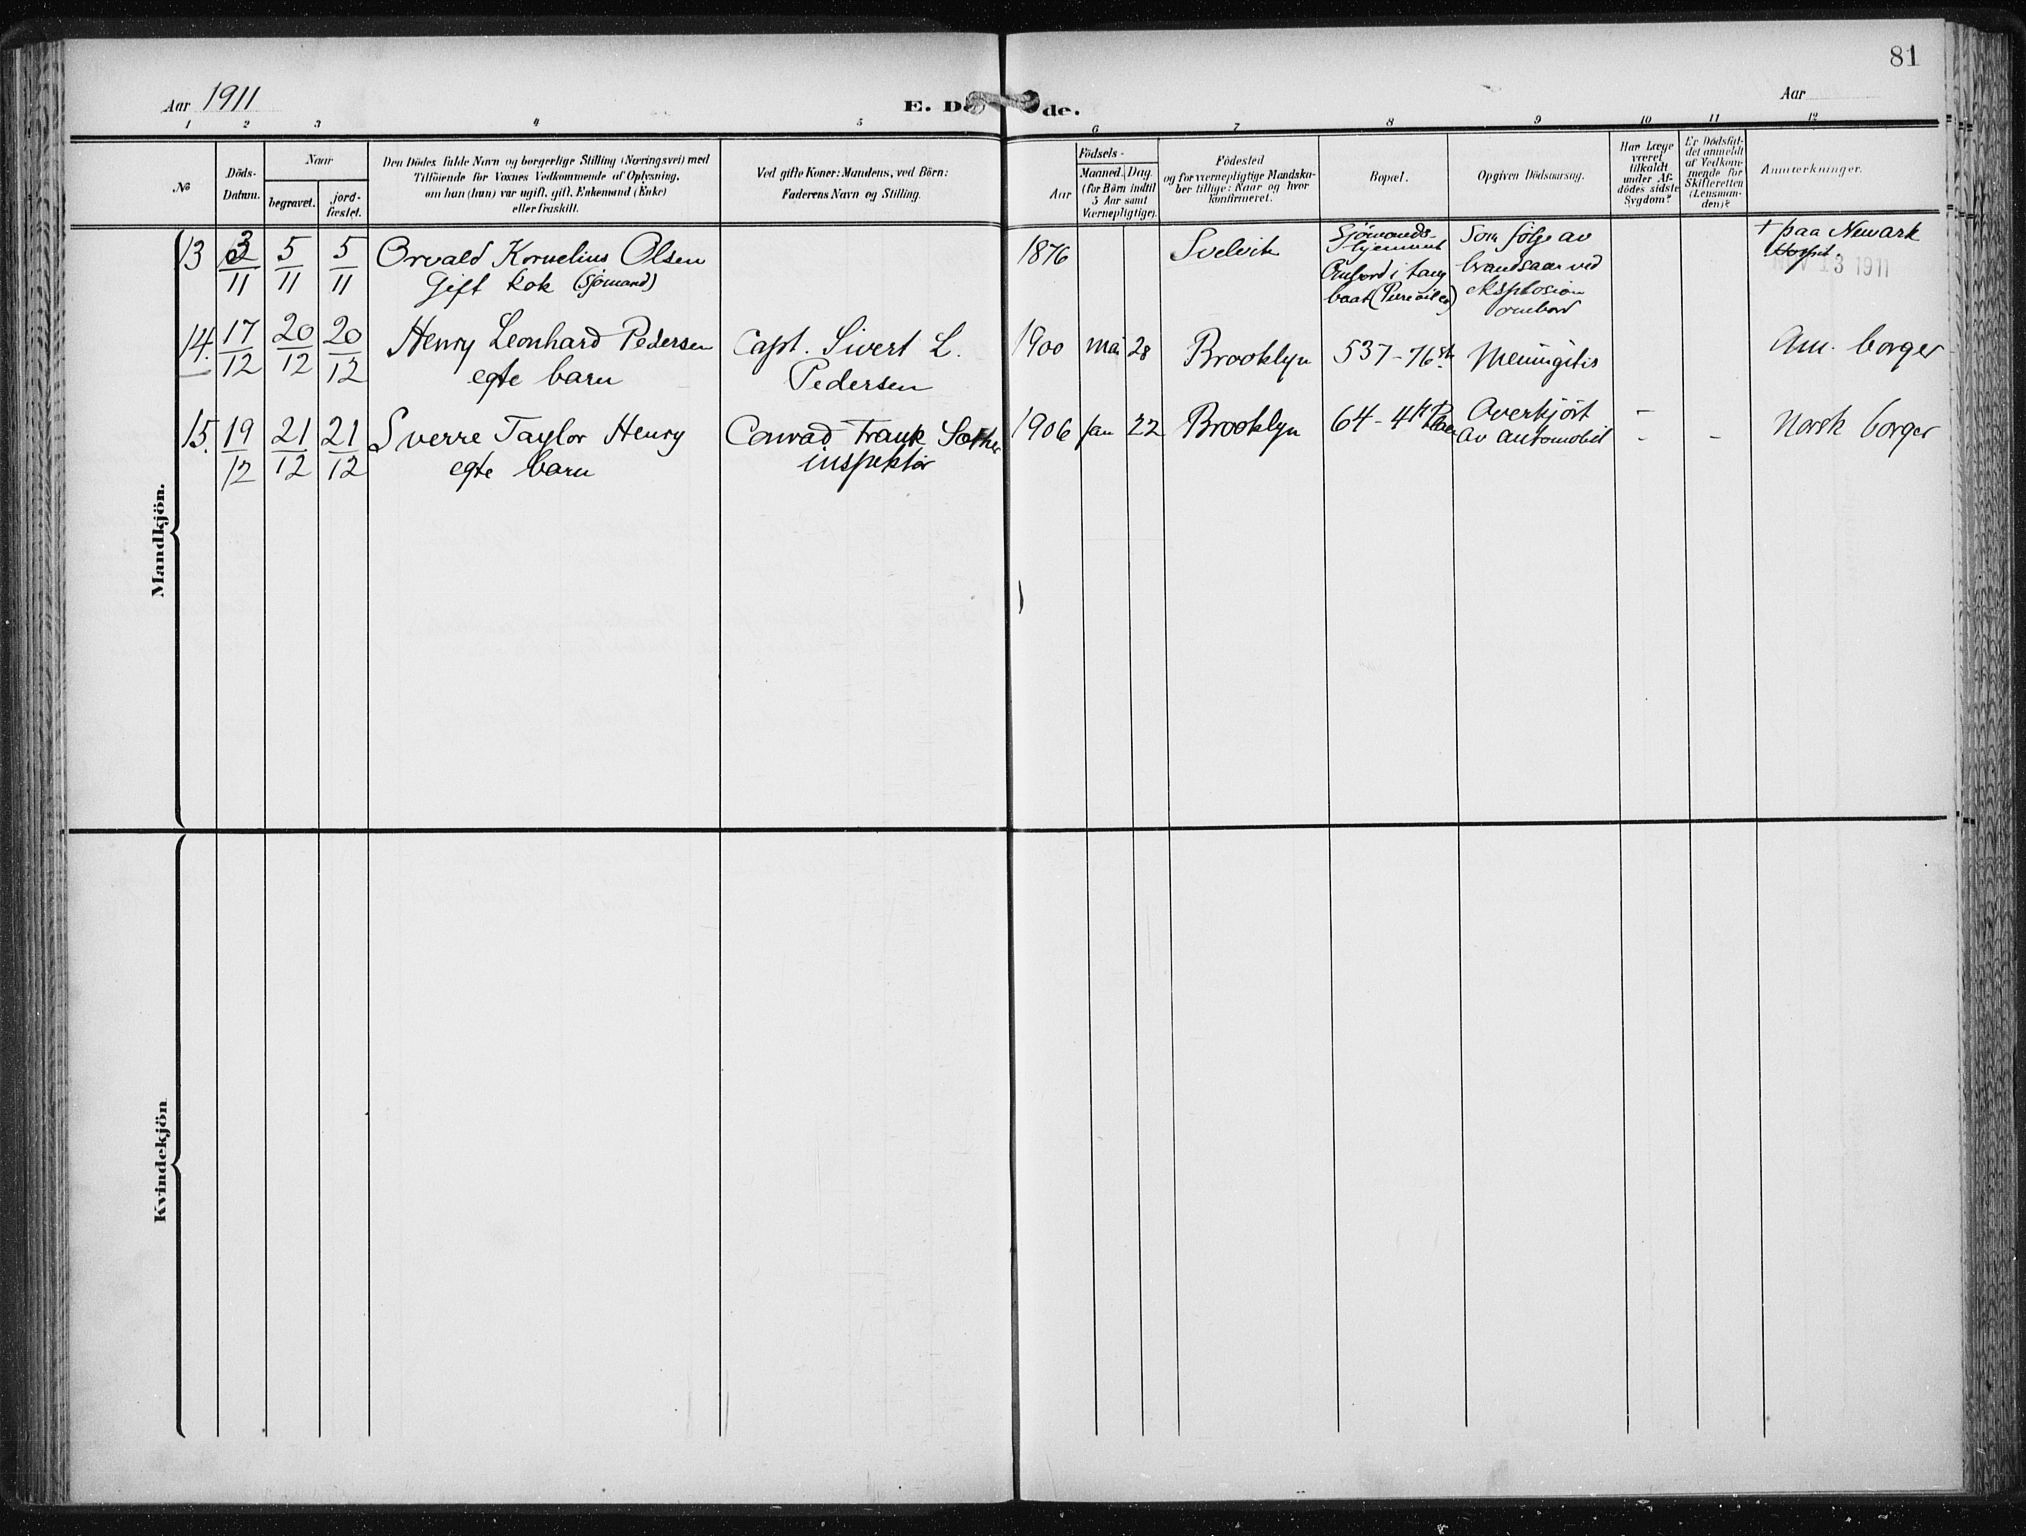 81
Aar 1911
E. Dö de.
Aar
1 2 3 4 5 6 7 8 9 10 11 12
No
Döds-
Datum.
Naar
begravet.
jord-
fæstet.
Den Dödes fulde Navn og borgerlige Stilling (Næringsvei) med
Tilföiende for Voxnes Vedkommende af Oplysning,
om han (hun) var ugift, gift, Enkemand (Enke)
eller fraskilt.
Ved gifte Koner: Mandens, ved Börn:
Faderens Navn og Stilling.
Födsels-
Aar
Maaned.
Dag.
(for Börn indtil
5 Aar samt
Værnepligtige).
Födested
og for værnepligtige Mandska-
ber tillige: Naar og hvor
konfirmeret.
Bopæl.
Opgiven Dödsaarsag.
Har Læge
været
tilkaldt
under Af-
dödes sidste
Sygdom?
Er Dödsfal-
det anmeldt
af Vedkom-
mende for
Skifteretten
(Lensman-
den)?
Anmærkninger.
Mandkjön.
13 3/11 5/11 5/11 Orvald Kornelius Olsen
Gift kok (Sjömand)
1876 Svelvik
Sjömands-
hjemmet
Ombord i tang
baat
Som følge av
brandsaar ved
eksplosion
ombord
† paa Newark
Hospit.
NOV 13 1911
14. 17/12 20/12 20/12 Henry Leonhard Pedersen
egte barn
Capt. Sivert L.
Pedersen
1900 mai 28 Brooklyn 537-76 st. Meningitis Am. borger
15. 19/12 21/12 21/12 Sverre Taylor Henry
egte barn
Conrad Frank Sother
inspektör
1906 jan 22 Brooklyn 64-4th Place
Overkjört
av automobil
- - -
Norsk borger
Kvindekjön